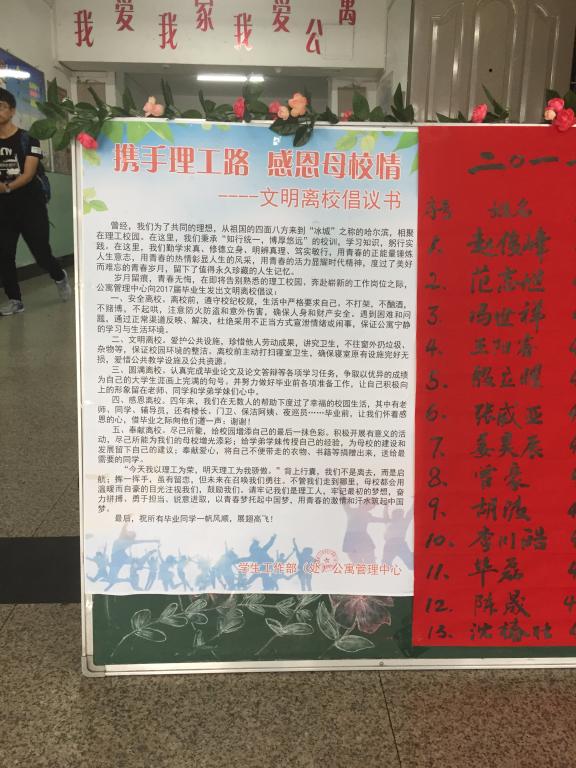 我爱我家我爱公寓
携手理工路 感恩母校情
----文明离校倡议书
曾经，我们为了共同的理想，从祖国的四面八方来到“冰城”之称的哈尔滨，相聚
在理工校园。在这里，我们秉承“知行统一，博厚悠远”的校训，学习知识，躬行实
践。在这里，我们勤学求真、修德立身、明辨真理、笃实敏行，用青春的正能量锤炼
人生意志，用青春的热情彰显人生的风采，用青春的活力显耀时代精神，度过了美好
而难忘的青春岁月，留下了值得永久珍藏的人生记忆。
岁月留痕，青春无悔，在即将告别熟悉的理工校园，奔赴崭新的工作岗位之际，
公寓管理中心向2017届毕业生发出文明离校倡议：
一、安全离校。离校前，遵守校纪校规，生活中严格要求自己，不打架，不酗酒，
不赌博、不起哄，注意防火防盗和意外伤害，确保人身和财产安全。遇到困难和问
题，通过正常渠道反映、解决，杜绝采用不正当方式宣泄情绪或闹事，保证公寓宁静
的学习与生活环境。
二、文明离校。爱护公共设施，珍惜他人劳动成果，讲究卫生，不往窗外扔垃圾、
杂物等，保证校园环境的整洁。离校前主动打扫寝室卫生，确保寝室原有设施完好无
损，爱惜公共教学设施及公共资源。
三、圆满离校。认真完成毕业论文及论文答辩等各项学习任务，争取以优异的成绩
为自己的大学生涯画上完满的句号。并努力做好毕业前各项准备工作，让自己积极向
上的形象留在老师、同学和学弟学妹们心中。
四、感恩离校。四年来，我们在无数人的帮助下度过了幸福的校园生活，其中有老
师、同学、辅导员，还有楼长、门卫、保洁阿姨、夜巡员……毕业前，让我们怀着感
恩的心，借毕业之际向他们道一声：谢谢！
五、奉献离校。尽己所能，给校园增添自己的最后一抹色彩。积极开展有意义的活
动，尽己所能为我们的母校增光添彩；给学弟学妹传授自己的经验，为母校的建设和
发展留下自己的建议；奉献爱心，将自己不便带走的衣物、书籍等捐赠出来，送给最
需要的同学。
“今天我以理工为荣，明天理工为我骄傲。”背上行囊，我们不是离去，而是启
航；挥一挥手，虽有留恋，但未来在召唤我们勇往。不管我们走到哪里，母校都会用
温暖而自豪的目光注视我们，鼓励我们。请牢记我们是理工人，牢记最初的梦想，奋
力拼搏，勇于担当，锐意进取，以青春梦托起中国梦，用青春的激情和汗水筑起中国
梦。
最后，祝所有毕业同学一帆风顺，展翅高飞！
学生工作部（处）公寓管理中心
二〇一
序号 姓名
1. 赵俊峰
2. 范高旭
3. 冯世祥
4. 王阳睿
5. 殷立曜
6. 张威亚
7. 姜昊辰
8. 曾豪
9. 胡波
10. 李川皓
11. 毕磊
12. 陈晟
13. 沈椿壮